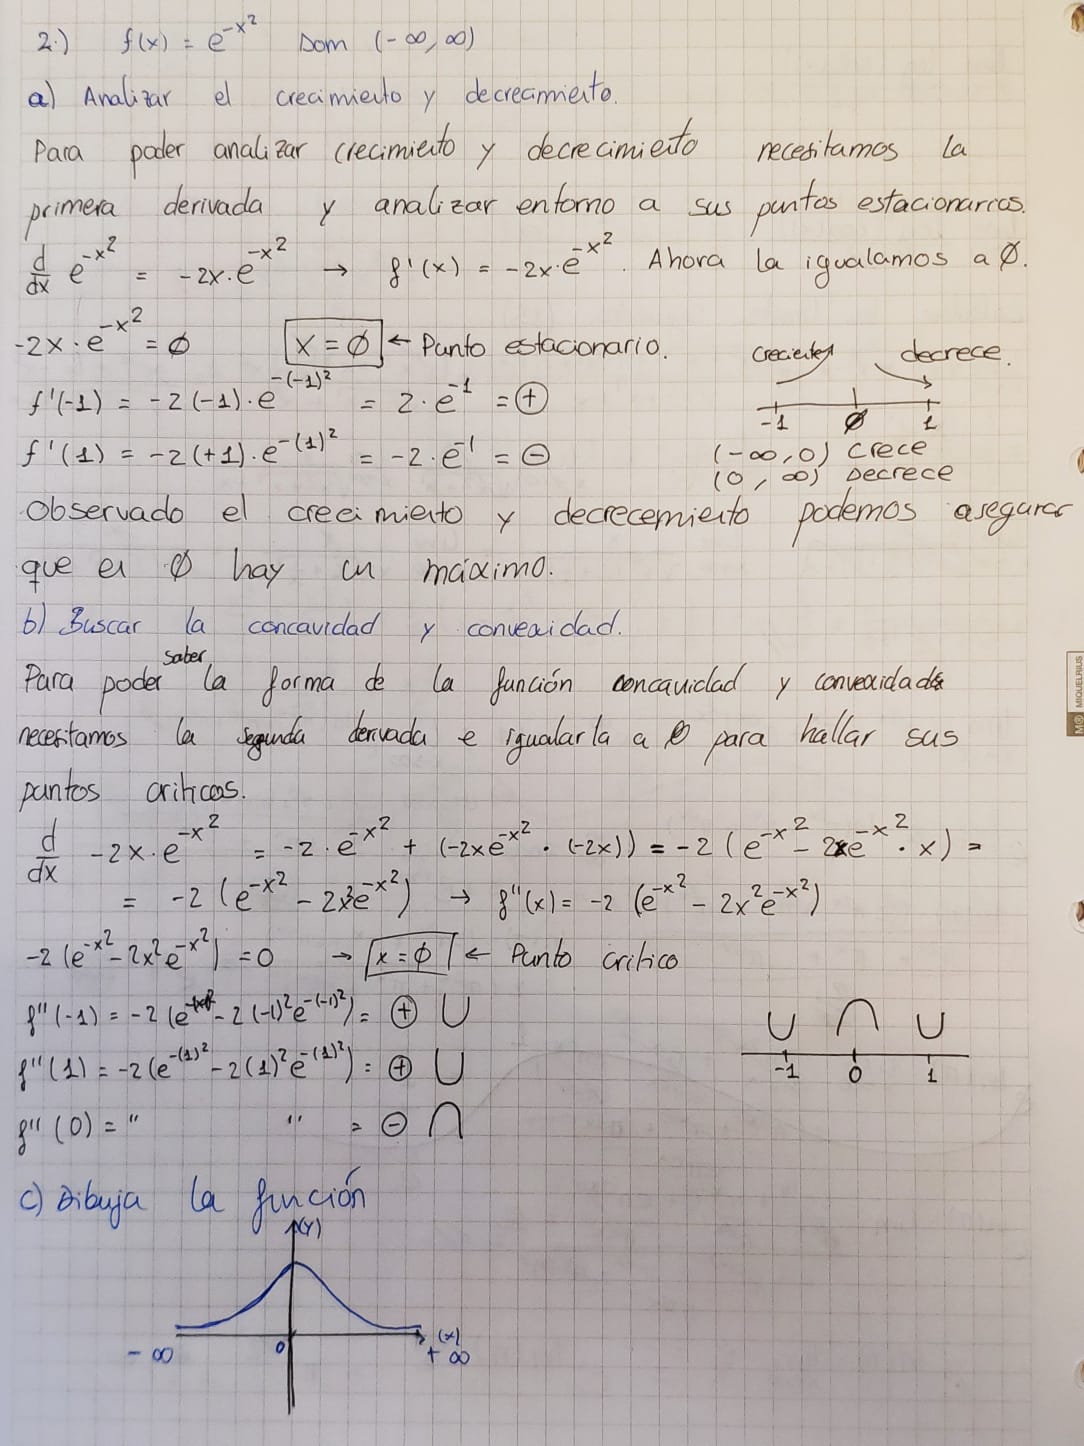 2.) f(x) = e^-x² Dom (-∞, ∞)
a) Analizar el crecimiento y decrecimiento.
Para poder analizar crecimiento y decrecimiento necesitamos la
primera derivada y analizar entorno a sus puntos estacionarios.
d/dx e^-x² = -2x·e^-x² → f'(x) = -2x·e^-x². Ahora la igualamos a Ø.
-2x·e^-x² = Ø x = Ø ← Punto estacionario.
f'(-1) = -2(-1)·e^-(-1)² = 2·e^-1 = ⊕
f'(1) = -2(+1)·e^-(1)² = -2·e^-1 = ⊖
decrece.
-1 Ø 1
(-∞,0) crece
(0, ∞) Decrece
Observado el crecimiento y decrecemiento podemos asegurar
que en Ø hay un máximo.
b) Buscar la concavidad y convexidad.
Para poder saber la forma de la función concavidad y convexidad
necesitamos la segunda derivada e igualarla a 0 para hallar sus
puntos criticos.
d/dx -2x·e^-x² = -2·e^-x² + (-2xe^-x² · (-2x)) = -2(e^-x² - 2xe^-x² · x) =
= -2(e^-x² - 2x²e^-x²) → f''(x) = -2 (e^-x² - 2x²e^-x²)
-2(e^-x² - 2x²e^-x²) = 0 → x = Ø ← Punto critico
f''(-1) = -2(e - 2(-1)²e^-(-1)²) = ⊕ ∪
f''(1) = -2(e^-(1)² - 2(1)²e^-(1)²) = ⊕ ∪
f''(0) = " " = ⊖ ∩
∪ ∩ ∪
-1 0 1
c) Dibuja la función
(y)
(x)
0
-∞
+∞
MIQUELRIUS